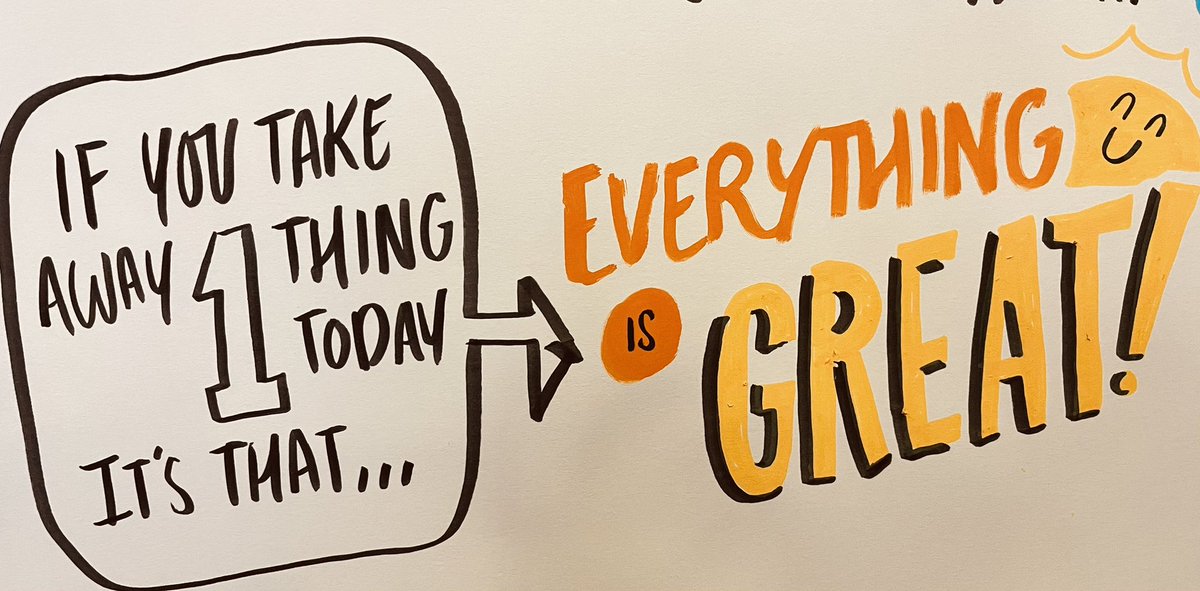 IF YOU TAKE
AWAY 1 THING
TODAY
IT'S THAT...
EVERYTHING
IS
GREAT!